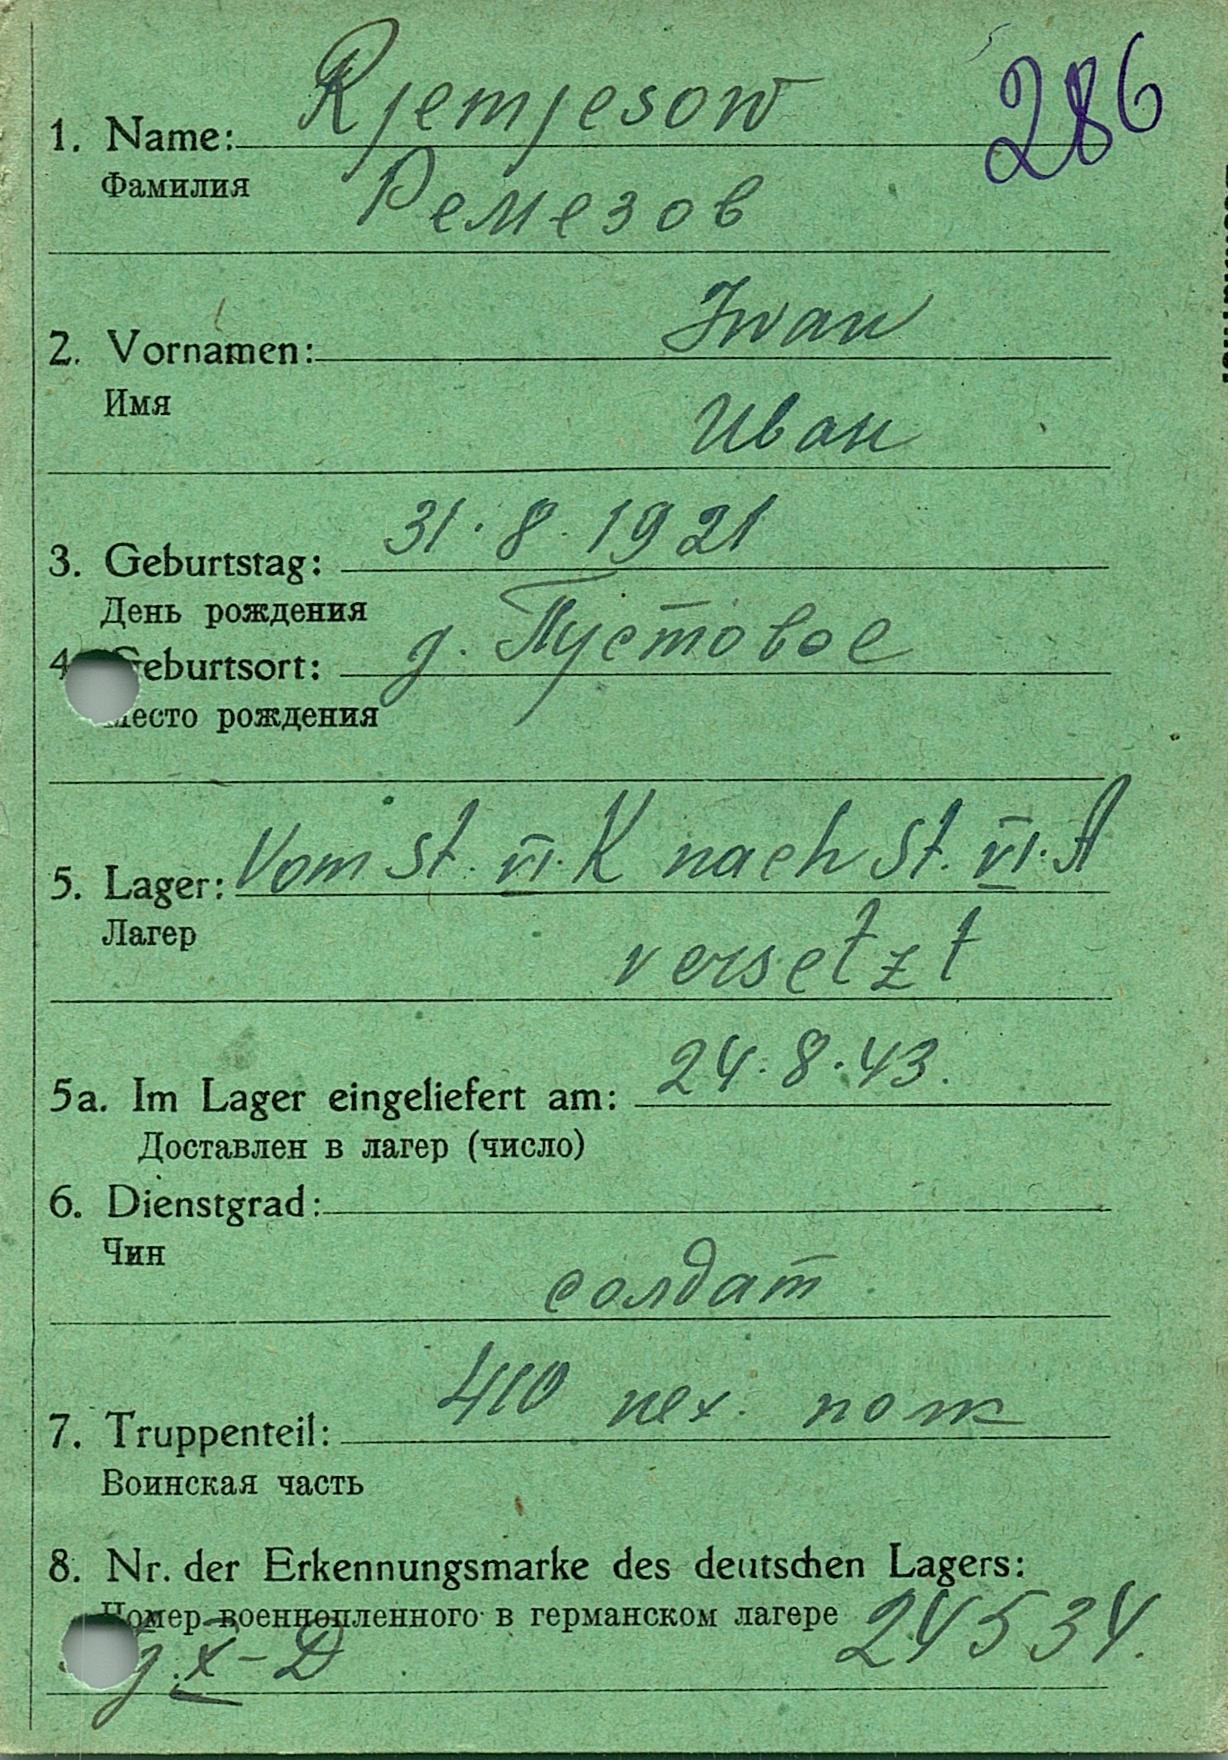 286
1. Name: Rjemjesow
Фамилия Ремезов
2. Vornamen: Iwan
Имя Иван
3. Geburtstag: 31.8.1921
День рождения
4. Geburtsort: д. Пустовое
Место рождения
5. Lager: Vom St. VI.K nach St. VI.A
Лагер versetzt
5a. Im Lager eingeliefert am: 24.8.43.
Доставлен в лагер (число)
6. Dienstgrad:
Чин солдат
7. Truppenteil: 410 пех. полк
Воинская часть
8. Nr. der Erkennungsmarke des deutschen Lagers:
Номер военнопленного в германском лагере 24534.
X-D